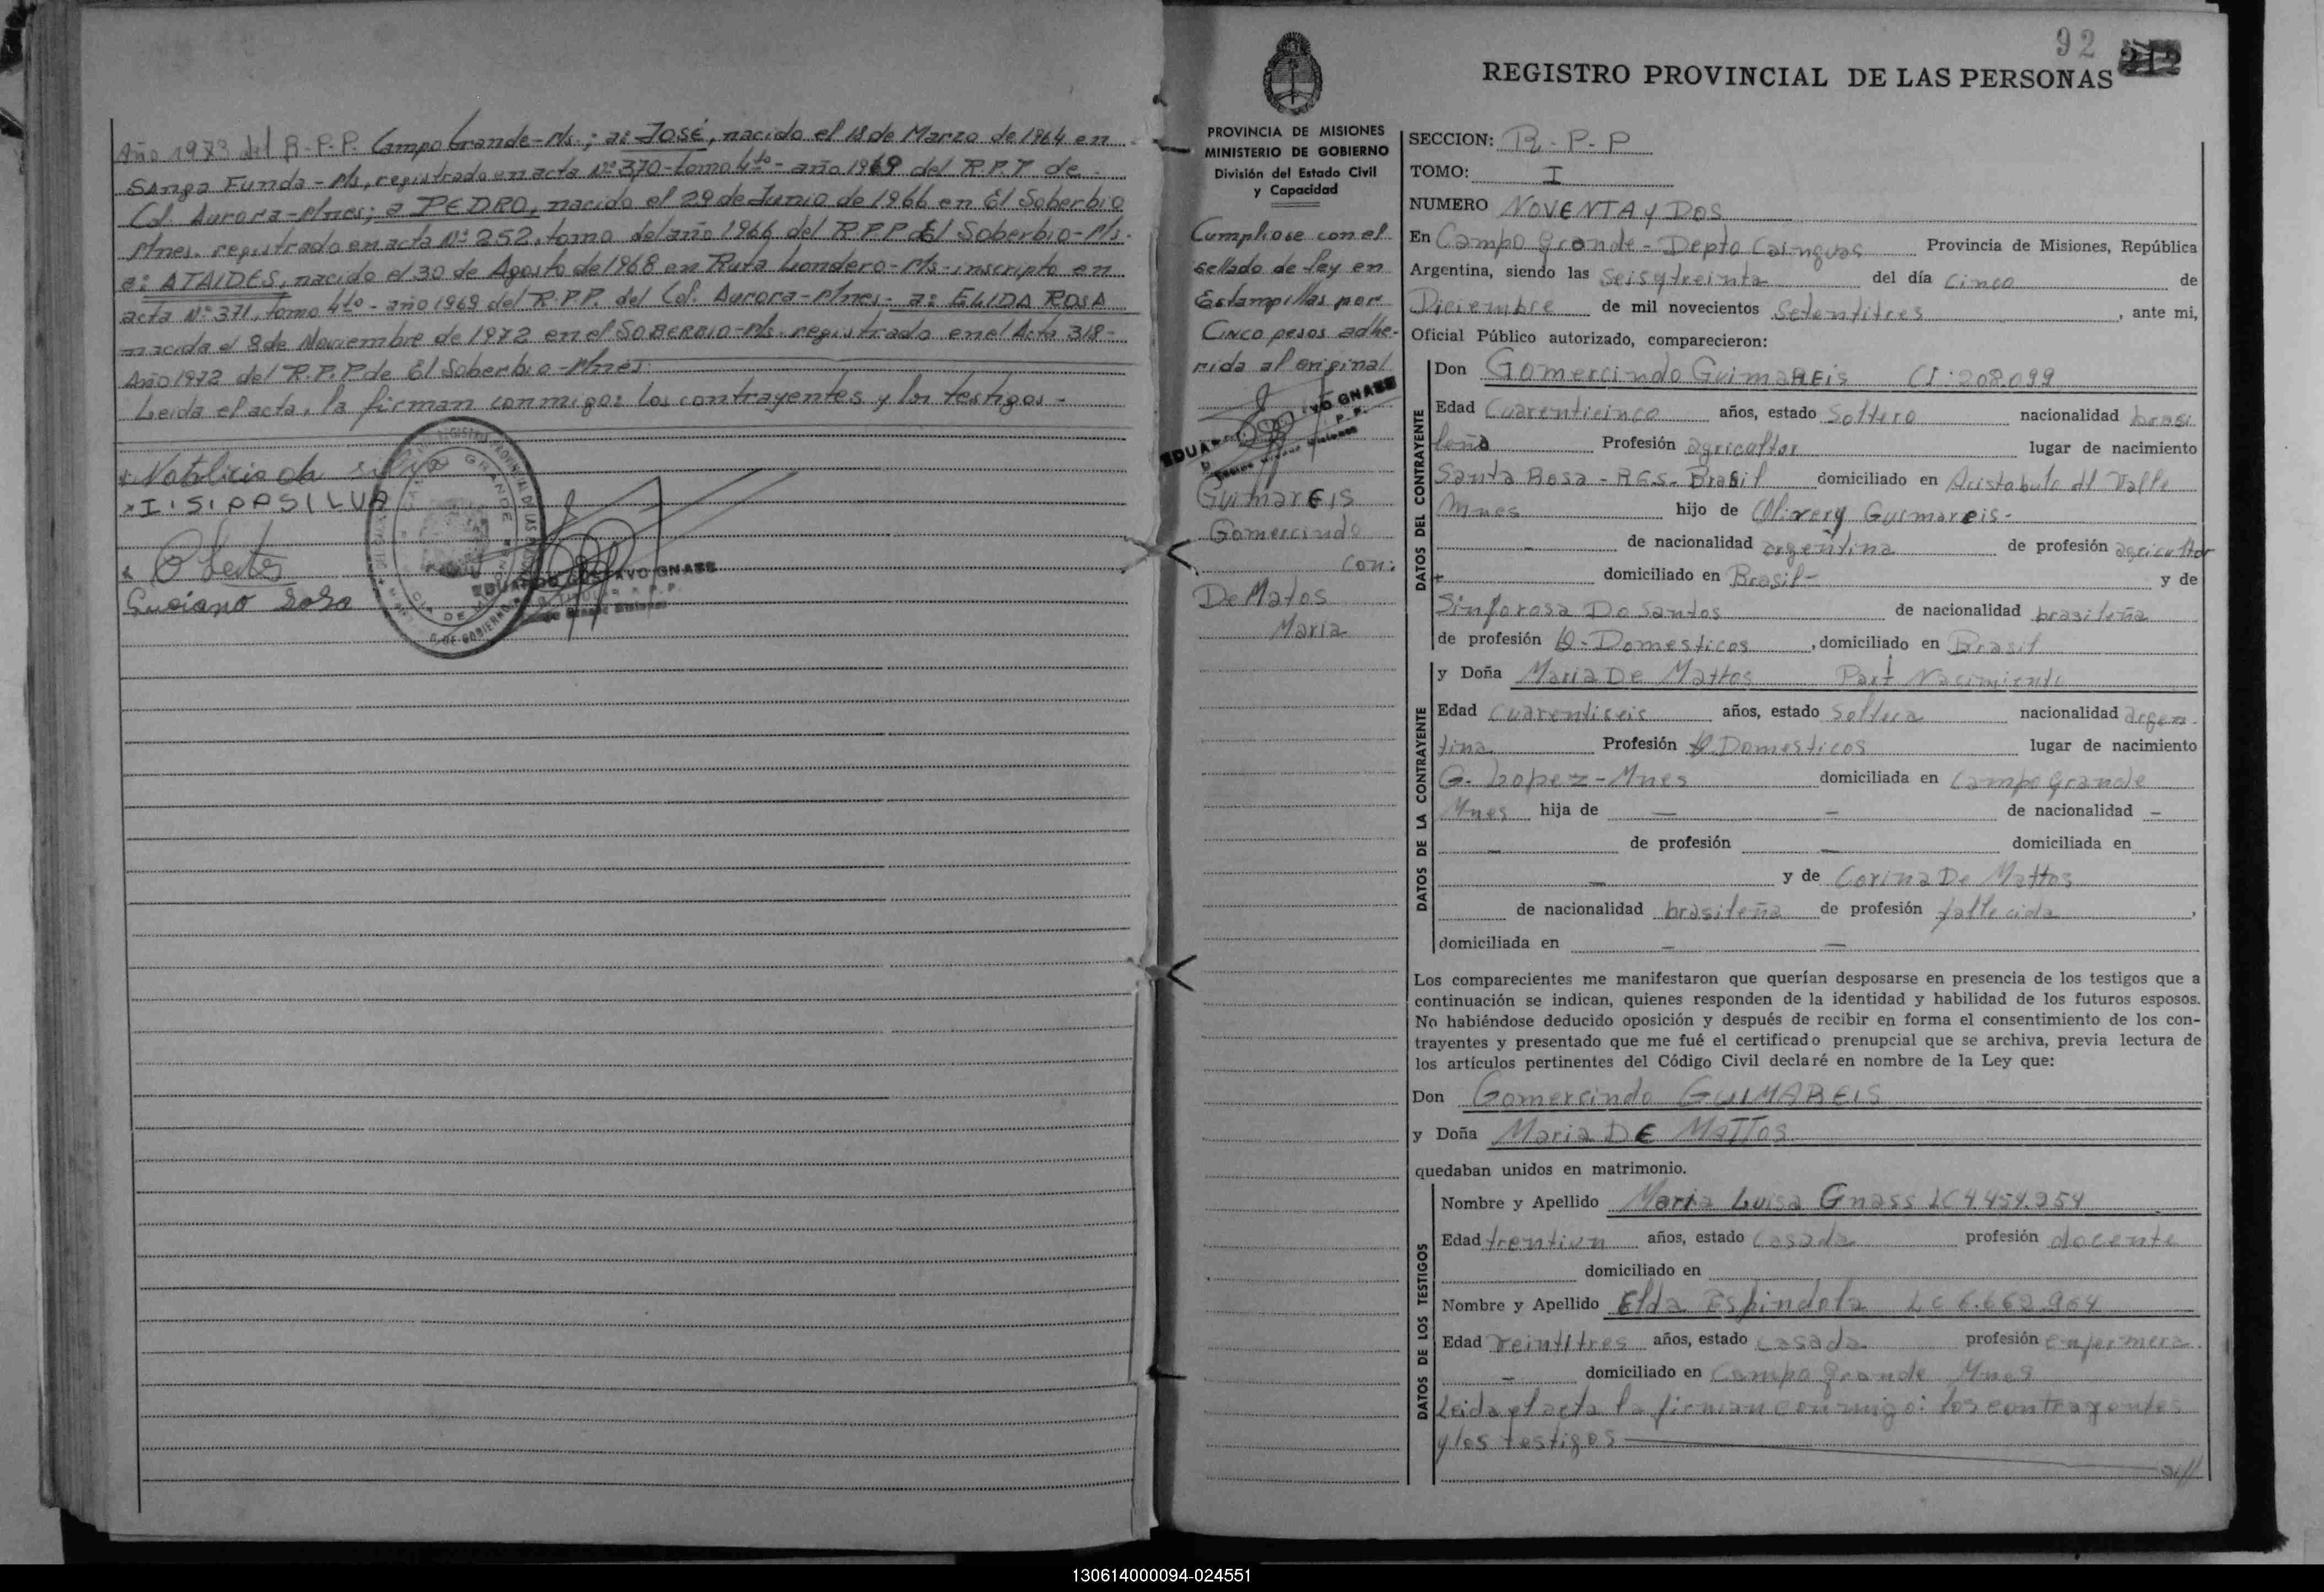 Año 1973 del R.P.P. Campo Grande-Ms.; a: JOSÉ, nacido el 18 de Marzo de 1964 en
Sanga Funda - Ms, registrado en acta Nº 370 - tomo 4to - año 1969 del R.P.P. de
Col. Aurora-Mnes; a PEDRO, nacido el 29 de Junio de 1966 en El Soberbio
Mnes. registrado en acta Nº 252, tomo del año 1966 del R.P.P. del Soberbio-Ms.
a: ATAIDES, nacido el 30 de Agosto de 1968 en Ruta Londero-Ms-inscripto en
acta Nº 371, tomo 4to - año 1969 del R.P.P. del Col. Aurora-Mnes- a: ELIDA ROSA
nacida el 8 de Noviembre de 1972 en el SOBERBIO-Ms. registrado en el Acta 318-
Año 1972 del R.P.P de El Soberbio-Mnes.
Leida el acta, la firman conmigo: los contrayentes y los testigos-
Natalicio da silva
Luciano Sosa
EDUARDO GUSTAVO GNASS
92
212
REGISTRO PROVINCIAL DE LAS PERSONAS
PROVINCIA DE MISIONES
MINISTERIO DE GOBIERNO
División del Estado Civil
y Capacidad
Cumpliose con el
sellado de ley en
Estampillas por
Cinco pesos adhe-
rida al original
EDUARDO GUSTAVO GNASS
Guimareis
Gomercindo
con:
De Matos
Maria
SECCION: R-P-P
TOMO: I
NUMERO NOVENTA y DOS
En Campo Grande - Depto Cainguas Provincia de Misiones, República
Argentina, siendo las Seis y treinta del día cinco de
Diciembre de mil novecientos Setentitres, ante mi,
Oficial Público autorizado, comparecieron:
DATOS DEL CONTRAYENTE
Don Gomercindo GuimaREis CI: 208.099
Edad Cuarenticinco años, estado Soltero nacionalidad brasi
leña Profesión agricultor lugar de nacimiento
Santa Rosa - R.G.S. - Brasil domiciliado en Aristabulo del Valle
Mnes hijo de Olivery Guimareis-
- de nacionalidad argentina de profesión agricultor
domiciliado en Brasil- y de
Sinforosa Do Santos de nacionalidad brasileña
de profesión Q-Domesticos, domiciliado en Brasil
DATOS DE LA CONTRAYENTE
y Doña Maria De Mattos Part Nacimiento
Edad Cuarentiseis años, estado Soltera nacionalidad argen-
tina Profesión Q.Domesticos lugar de nacimiento
G. Lopez-Mnes domiciliada en Campo Grande
Mnes hija de - - de nacionalidad -
- de profesión - domiciliada en
- y de Corina De Mattos
de nacionalidad brasileña de profesión fallecida,
domiciliada en - -
Los comparecientes me manifestaron que querían desposarse en presencia de los testigos que a
continuación se indican, quienes responden de la identidad y habilidad de los futuros esposos.
No habiéndose deducido oposición y después de recibir en forma el consentimiento de los con-
trayentes y presentado que me fué el certificado prenupcial que se archiva, previa lectura de
los artículos pertinentes del Código Civil declaré en nombre de la Ley que:
Don Gomercindo GUIMAREIS
y Doña Maria DE MATTOS
quedaban unidos en matrimonio.
DATOS DE LOS TESTIGOS
Nombre y Apellido Maria Luisa Gnass LC 4.454.954
Edad trentiun años, estado casada profesión docente
domiciliado en
Nombre y Apellido Elda Espindola LC 6.662.964
Edad veintitres años, estado casada profesión enfermera
- domiciliado en Campo Grande Mnes
Leida el acta la firman conmigo: los contrayentes
y los testigos
130614000094-024551